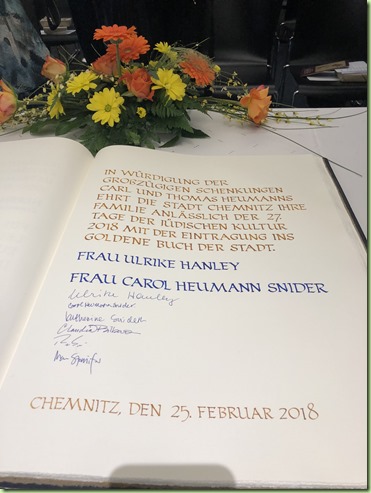 IN WÜRDIGUNG DER
GROẞZÜGIGEN SCHENKUNGEN
CARL UND THOMAS HEUMANNS
EHRT DIE STADT CHEMNITZ IHRE
FAMILIE ANLÄSSLICH DER 27.
TAGE DER JÜDISCHEN KULTUR
2018 MIT DER EINTRAGUNG INS
GOLDENE BUCH DER STADT.
FRAU ULRIKE HANLEY
FRAU CAROL HEUMANN SNIDER
Ulrike Hanley
Carol Heumann Snider
Katherine Snider
Claudia
CHEMNITZ, DEN 25. FEBRUAR 2018